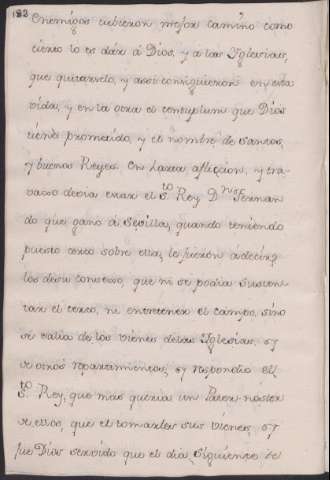 182
Enemigos tubieron mejor camino como
cierto lo es dár á Dios, y a las Yglesias,
que quitarselo, y assi consiguieron en esta
vida, y en la otra el centuplum que Dios
tiene prometido, y el nombre de santos,
y buenos Reyes. En harta aflicion, y tra-
vaxo devia estar el S.to Rey D.n Fernan
do que ganó á Sevilla, quando teniendo
puesto cerco sobre ella, le fueron á decir
los de su consexo, que ni se podia susten-
tar el cerco, ni entretener el campo, sino
se valia de los vienes de las Yglesias, y
de otros y respondio el
S.to Rey, que mas queria un Pater-noster
de ellos, que el tomarles sus vienes, y
fue Dios servido que el dia siguiente se